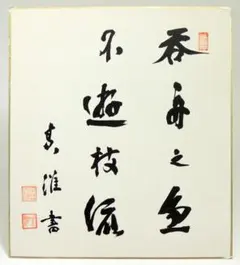 呑舟之魚
不遊枝流
書